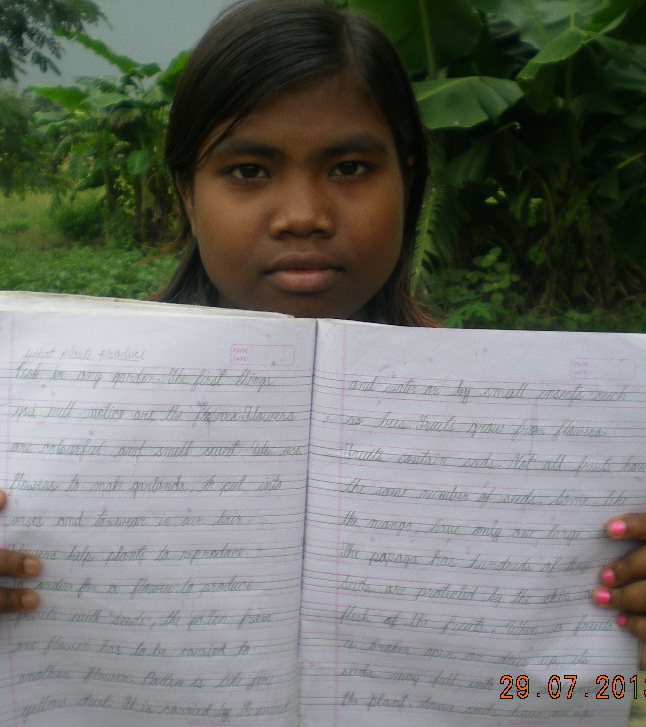 what plants produce
look in any garden. The first things
you will notice are the flowers. Flowers
are colourful and smell sweet. We use
flowers to make garlands, to put into
vases and to wear in our hair.
Flowers help plants to reproduce.
In order for a flower to produce
fruits with seeds, the pollen from
one flower has to be carried to
another flower. Pollen is like fine
yellow dust. It is carried by the wind
and water or by small insects such
as bees. Fruits grow from flowers.
Fruits contain seeds. Not all fruits have
the same number of seeds. Some like
the mango, have only one large
The papaya has hundreds of
seeds are protected by the skin
flesh of the fruits. When a fruit
is broken open or dries up its
seeds may fall
the plant. Some
29.07.2013